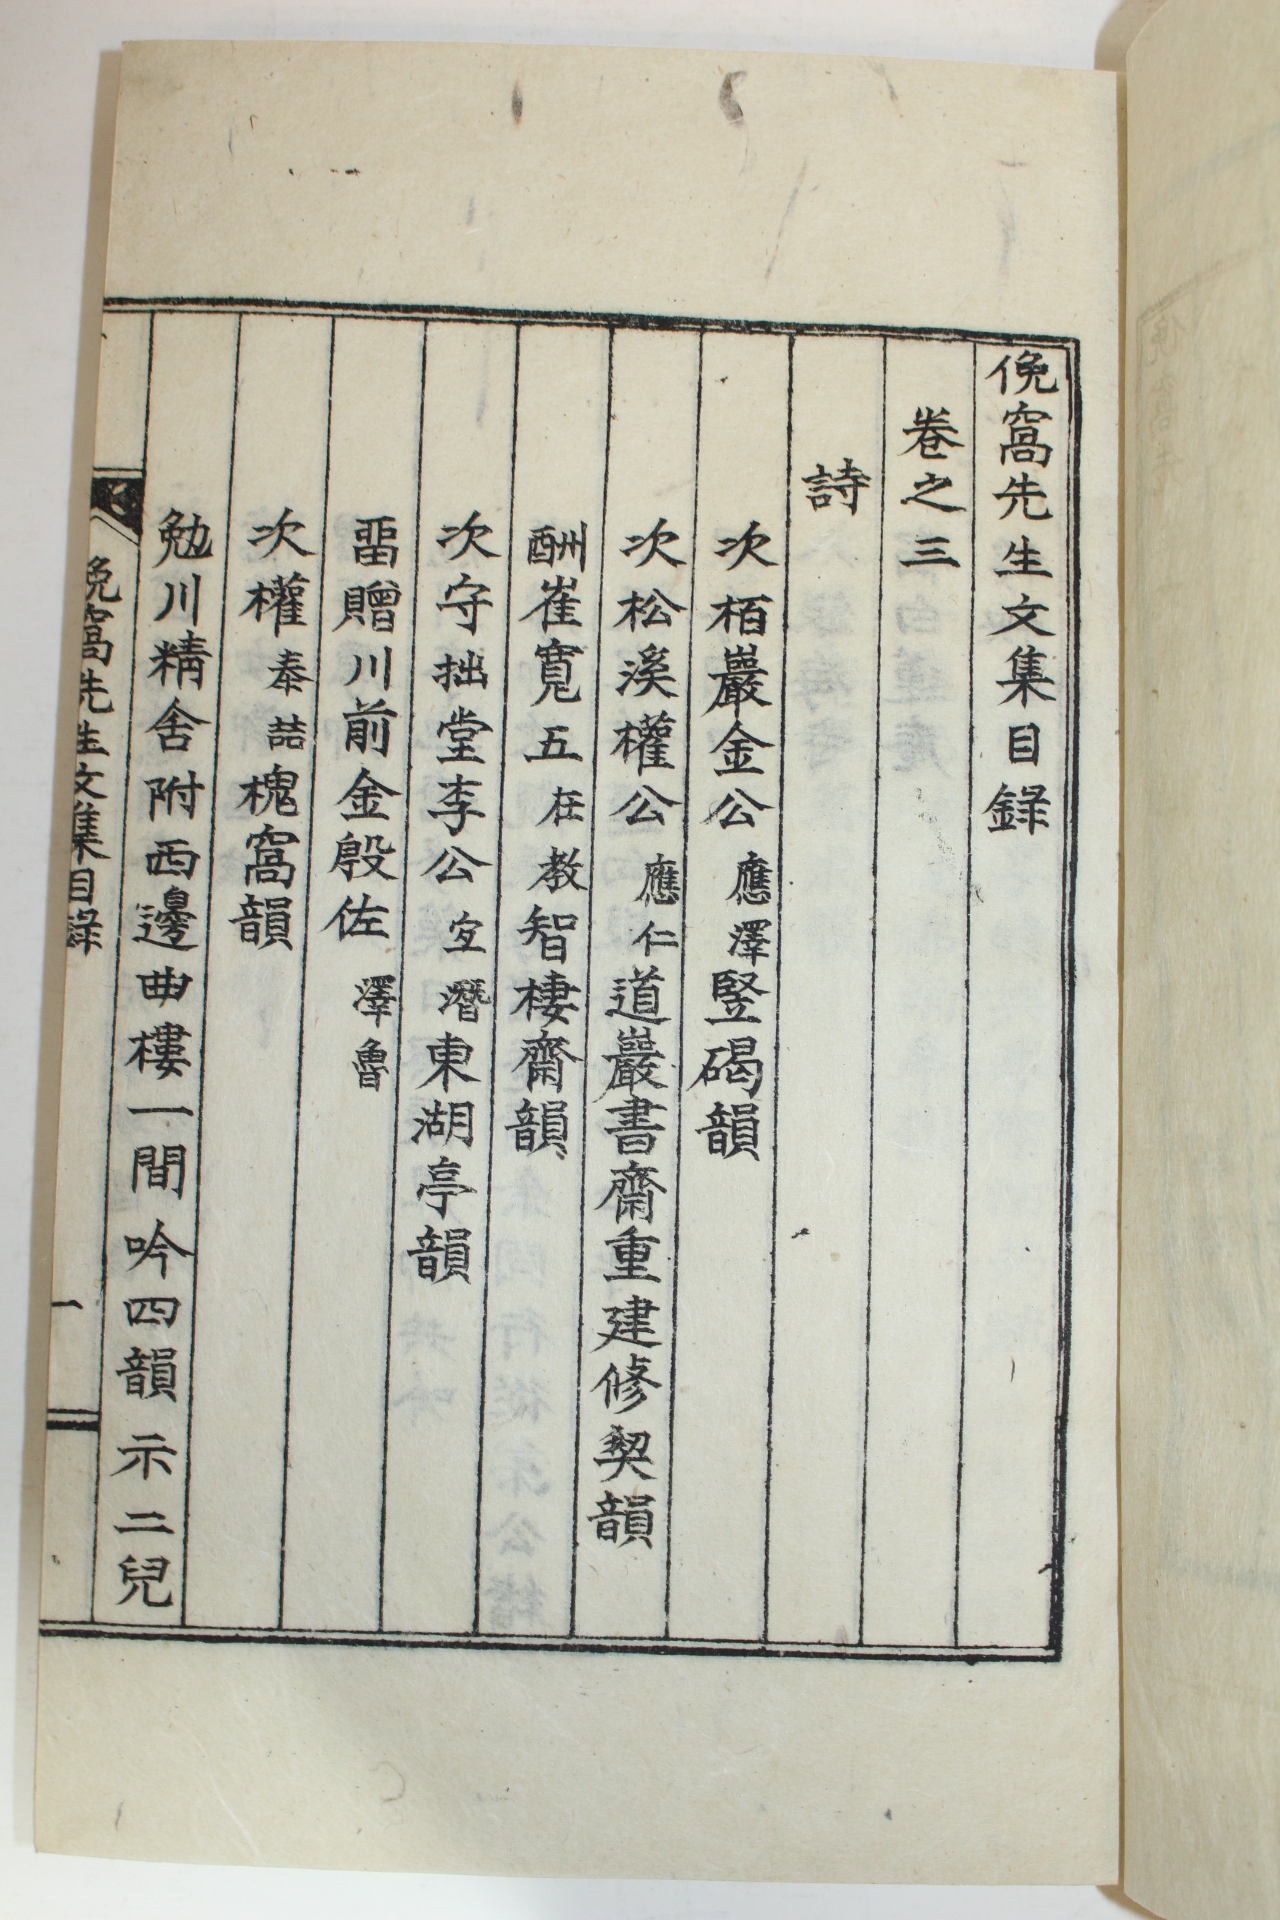 俛窩先生文集目錄
卷之三
詩
次栢巖金公應澤竪碣韻
次松溪權公應仁道巖書齋重建修契韻
酬崔寬五在教智棲齋韻
次守拙堂李公宜潛東湖亭韻
留贈川前金殷佐澤魯
次權泰喆槐窩韻
勉川精舍附西邊曲樓一間吟四韻示二兒
俛窩先生文集目錄
一